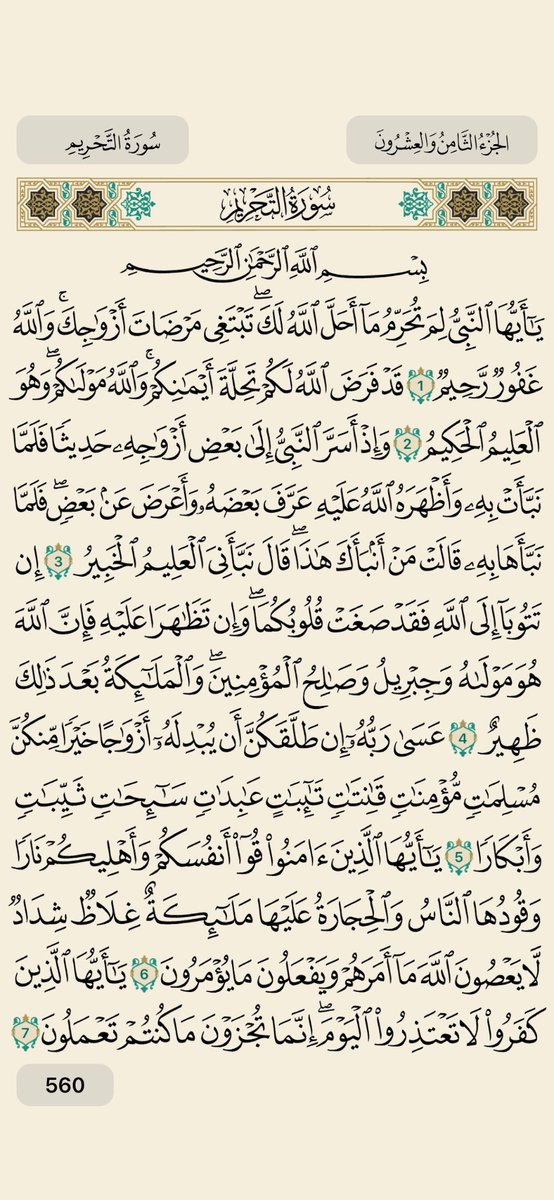 الجُزْءُ الثَّامِنُ وَالعِشْرُونَ
سُورَةُ التَّحْرِيمِ
سُورَةُ التَّحْرِيمِ
بِسْمِ ٱللَّهِ ٱلرَّحْمَٰنِ ٱلرَّحِيمِ
يَـٰٓأَيُّهَا ٱلنَّبِىُّ لِمَ تُحَرِّمُ مَآ أَحَلَّ ٱللَّهُ لَكَ ۖ تَبْتَغِى مَرْضَاتَ أَزْوَٰجِكَ ۚ وَٱللَّهُ
غَفُورٌ رَّحِيمٌ 1 قَدْ فَرَضَ ٱللَّهُ لَكُمْ تَحِلَّةَ أَيْمَـٰنِكُمْ ۚ وَٱللَّهُ مَوْلَىٰكُمْ ۖ وَهُوَ
ٱلْعَلِيمُ ٱلْحَكِيمُ 2 وَإِذْ أَسَرَّ ٱلنَّبِىُّ إِلَىٰ بَعْضِ أَزْوَٰجِهِۦ حَدِيثًا فَلَمَّا
نَبَّأَتْ بِهِۦ وَأَظْهَرَهُ ٱللَّهُ عَلَيْهِ عَرَّفَ بَعْضَهُۥ وَأَعْرَضَ عَنۢ بَعْضٍ ۖ فَلَمَّا
نَبَّأَهَا بِهِۦ قَالَتْ مَنْ أَنۢبَأَكَ هَـٰذَا ۖ قَالَ نَبَّأَنِىَ ٱلْعَلِيمُ ٱلْخَبِيرُ 3 إِن
تَتُوبَآ إِلَى ٱللَّهِ فَقَدْ صَغَتْ قُلُوبُكُمَا ۖ وَإِن تَظَـٰهَرَا عَلَيْهِ فَإِنَّ ٱللَّهَ
هُوَ مَوْلَىٰهُ وَجِبْرِيلُ وَصَـٰلِحُ ٱلْمُؤْمِنِينَ ۖ وَٱلْمَلَـٰٓئِكَةُ بَعْدَ ذَٰلِكَ
ظَهِيرٌ 4 عَسَىٰ رَبُّهُۥٓ إِن طَلَّقَكُنَّ أَن يُبْدِلَهُۥٓ أَزْوَٰجًا خَيْرًا مِّنكُنَّ
مُسْلِمَـٰتٍ مُّؤْمِنَـٰتٍ قَـٰنِتَـٰتٍ تَـٰٓئِبَـٰتٍ عَـٰبِدَٰتٍ سَـٰٓئِحَـٰتٍ ثَيِّبَـٰتٍ
وَأَبْكَارًا 5 يَـٰٓأَيُّهَا ٱلَّذِينَ ءَامَنُوا۟ قُوٓا۟ أَنفُسَكُمْ وَأَهْلِيكُمْ نَارًا
وَقُودُهَا ٱلنَّاسُ وَٱلْحِجَارَةُ عَلَيْهَا مَلَـٰٓئِكَةٌ غِلَاظٌ شِدَادٌ
لَّا يَعْصُونَ ٱللَّهَ مَآ أَمَرَهُمْ وَيَفْعَلُونَ مَا يُؤْمَرُونَ 6 يَـٰٓأَيُّهَا ٱلَّذِينَ
كَفَرُوا۟ لَا تَعْتَذِرُوا۟ ٱلْيَوْمَ ۖ إِنَّمَا تُجْزَوْنَ مَا كُنتُمْ تَعْمَلُونَ 7
560